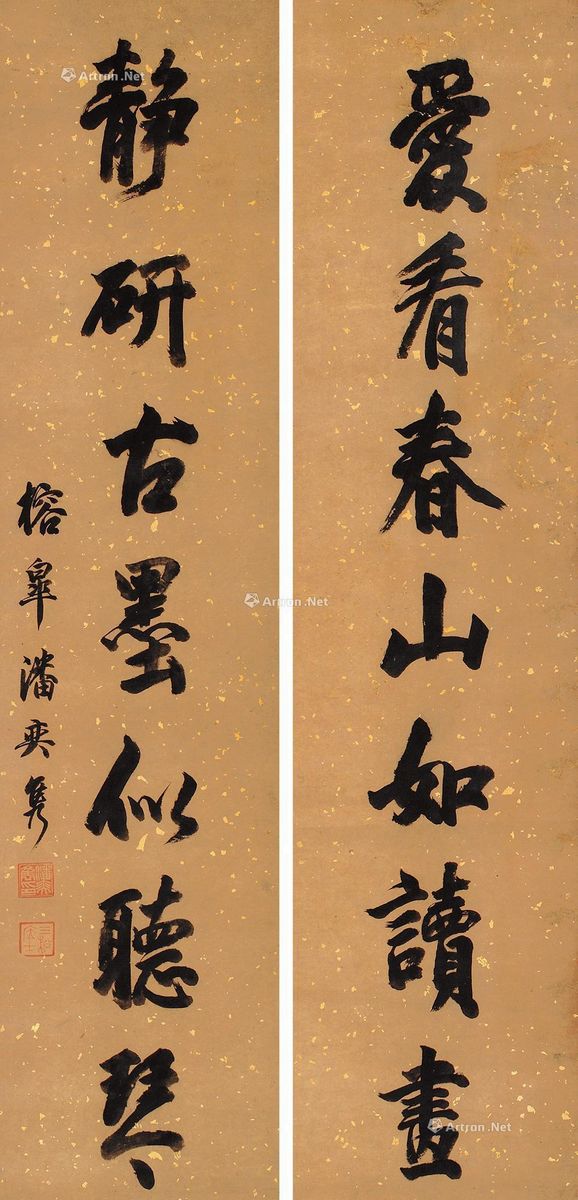 愛看春山如讀畫
靜研古墨似聽琴
榕皋潘奕雋
Artron.Net
Artron.Net
Artron.Net
Artron.Net